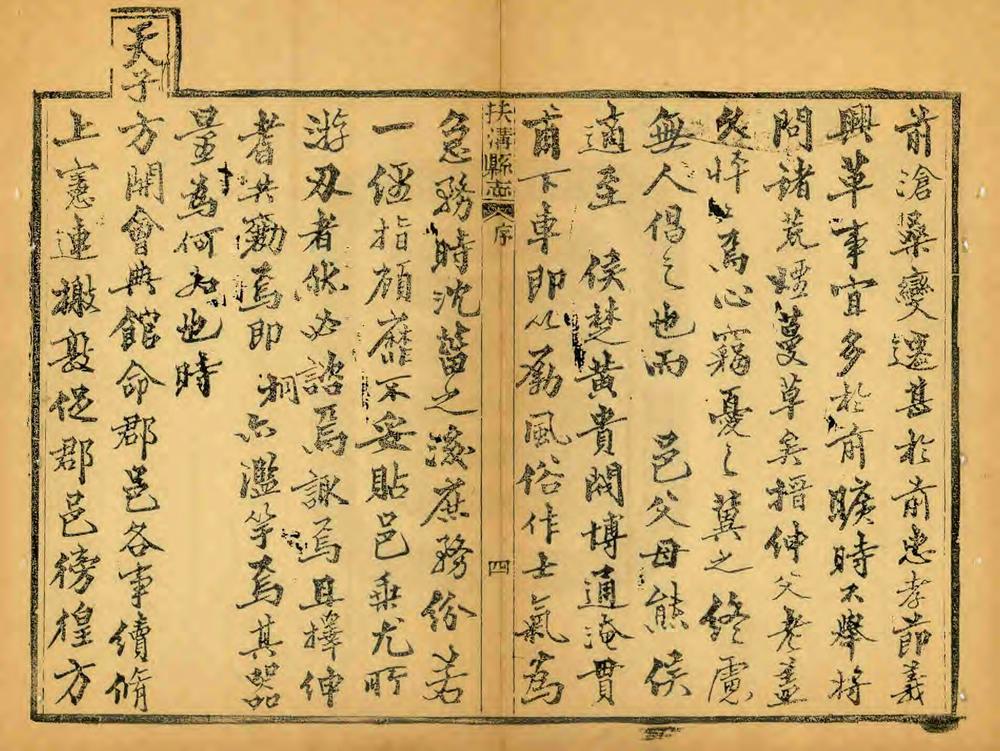 前滄桑變遷甚於前忠孝節義
興革事宜多於前曠時不舉將
問諸荒烟蔓草矣搢伸父老蓋
心竊憂之冀之終慮
無人倡之也而 邑父母熊侯
適至 侯楚黃貴閥博通淹貫
甫下車即以勵風俗作士氣為
扶溝縣志 序 四
急務時沈菑之後庶務份若
一經指顧靡不妥貼邑乘尤所
游刃者然必諮焉諏焉且擇伸
者共勷焉即 桐亦濫竽焉其器
量為何如也時
天子
方開會典館命郡邑各事續脩
上憲連檄敦促郡邑傍徨方